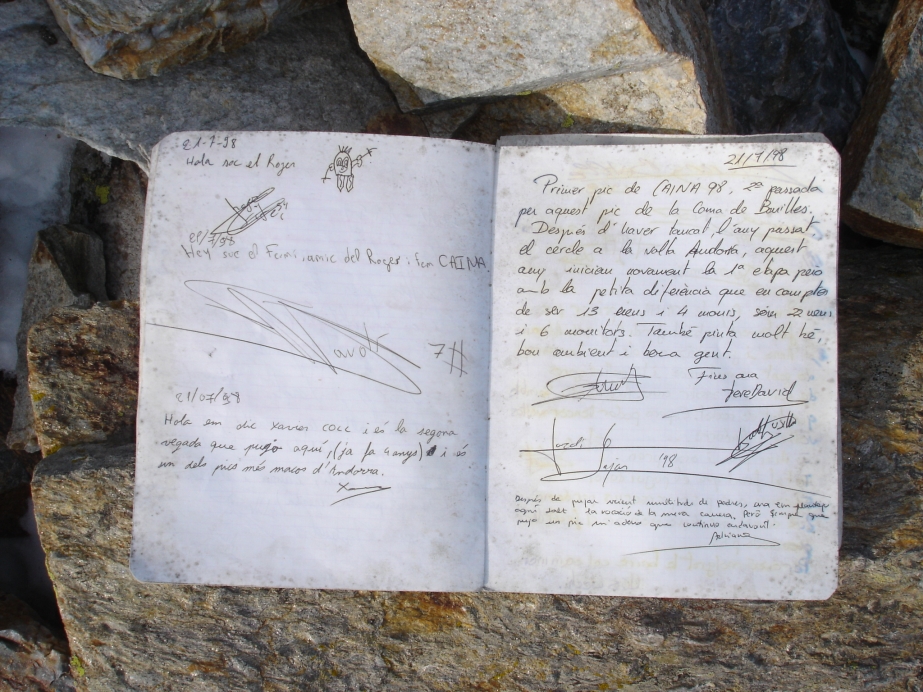 21-7-98
Hola soc el Roger
21/7/98
Hey soc el Fermí, amic del Roger i fem CAINA.
7#
21/07/98
Hola em dic xavier coce i és la segona
vegada que pujo aquí, (ja fa 4 anys) i és
un dels pics més macos d'Andorra.
Xavier
21/7/98
Primer pic de CAINA 98, 2ª passada
per aquest pic de la Coma de Bavilles.
Després d'haver tancat, l'any passat
el cercle a la volta Andorra, aquest
any iniciem novament la 1ª etapa però
amb la petita diferència que en comptes
de ser 13 nens i 4 monis, som 22 nens
i 6 monitors. També pinta molt bé,
bon ambient i bona gent.
Fins ara
Pere David
Jordi
98
Després de pujar veient multitud de pedres, ara em
aquí dalt la vocació de la meva carrera, però sempre que
pujo un pic m'adono que continuo endavant.
Adriana